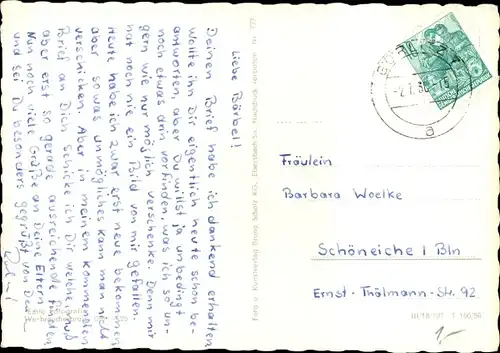 Liebe Bärbel!
Deinen Brief habe ich dankend erhalten
Wollte ihn Dir eigentlich heute schon be-
antworten, aber Du willst ja unbedingt
noch etwas drin vorfinden, was ich so un-
gern wie nur möglich verschenke. Denn mir
hat noch nie ein Bild von mir gefallen.
Heute habe ich zwar erst neue bekommen
aber so was unmögliches kann man nicht
verschicken. Aber in meinem kommenden
Brief an Dich schicke ich Dir welche, muß
aber erst so gerade ausreichende finden
Nun noch viele Grüße an Deine Eltern
und sei Du besonders gegrüßt von Deinem
Fräulein
Barbara Woelke
Schöneiche / Bln
Ernst-Thälmann-Str. 92